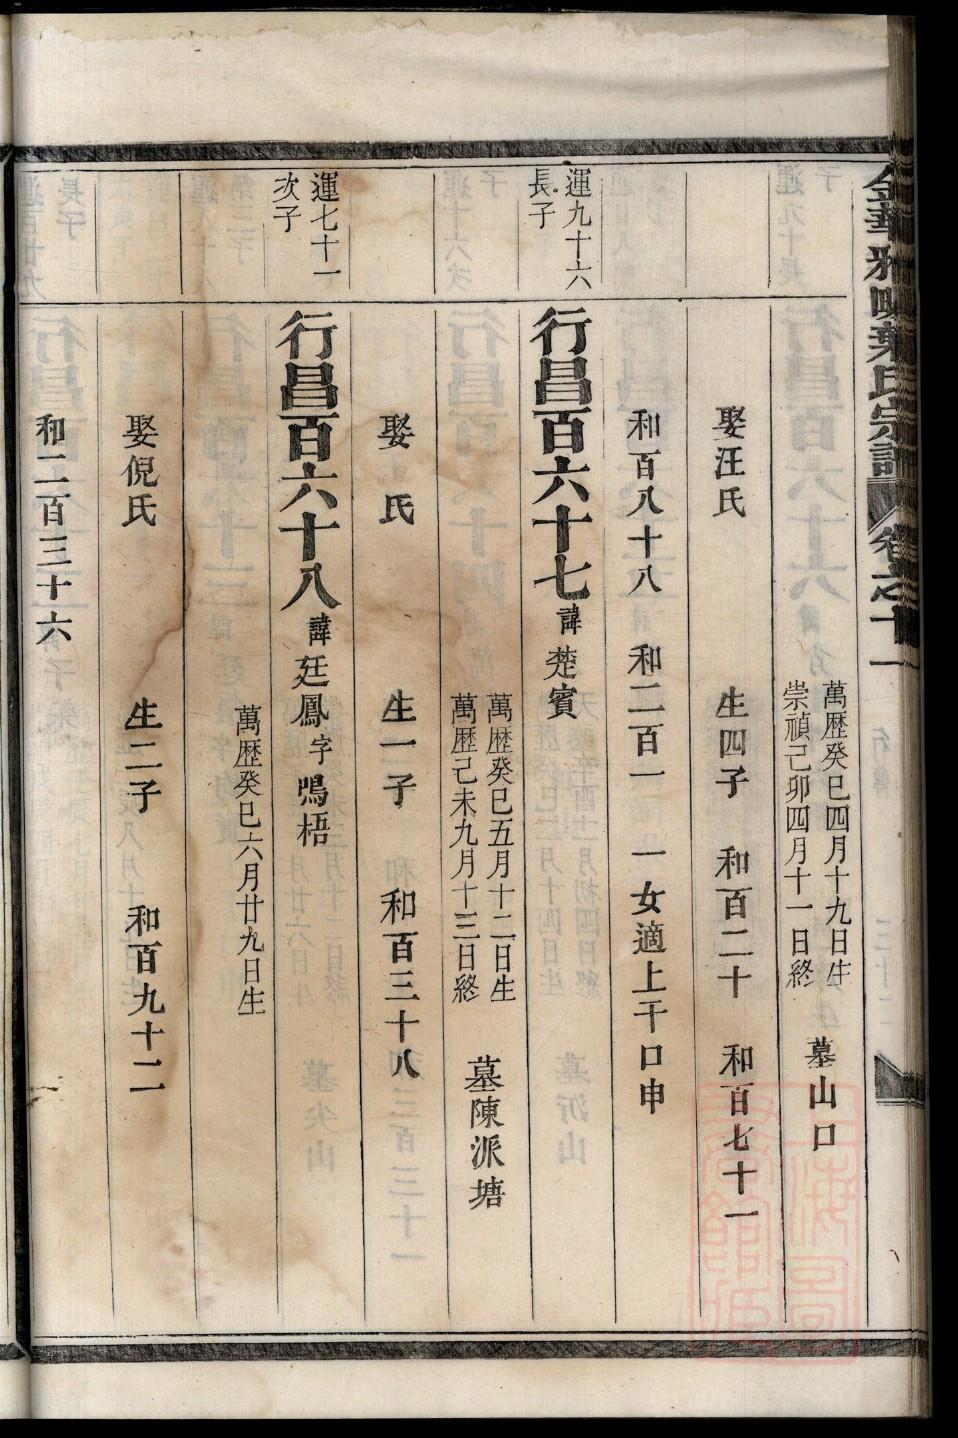 金華雅畈葉氏宗譜 卷之十一
萬歷癸巳四月十九日生
崇禎己卯四月十一日終
墓山口
娶汪氏 生四子 和百二十 和百七十一
和百八十八 和二百一 一女適上干口申
運九十六
長子
行昌百六十七 諱楚賓
萬歷癸巳五月十二日生
萬歷己未九月十三日終
墓陳派塘
娶 氏 生一子 和百三十八
運七十一
次子
行昌百六十八 諱廷鳳字鳴梧
萬歷癸巳六月廿九日生
娶倪氏 生二子 和百九十二
和二百三十六